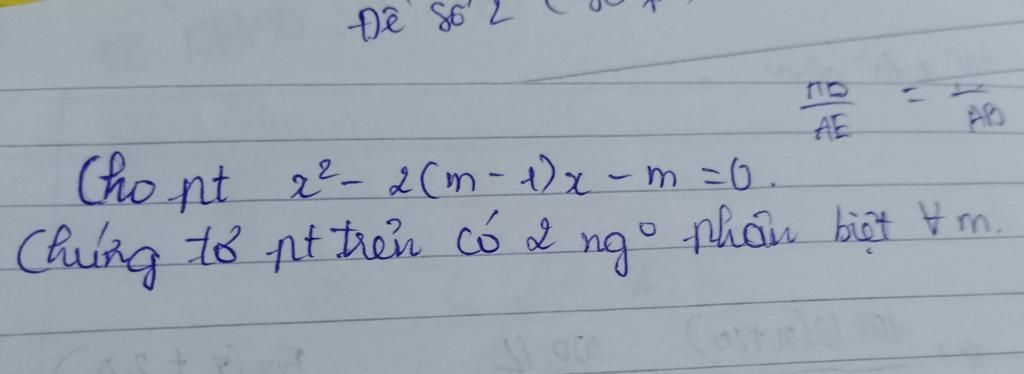 Đề số 2
AE = AB
Cho pt x² - 2(m - 1)x - m = 0.
Chứng tỏ pt trên có 2 ngº phân biệt ∀m.